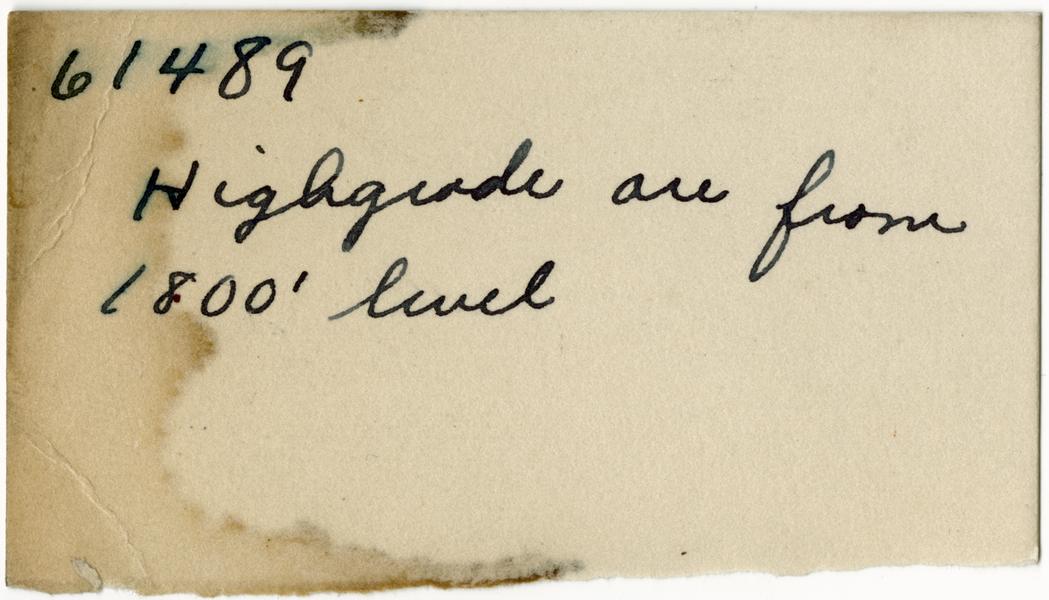 61489
Highgrade ore from
1800' level